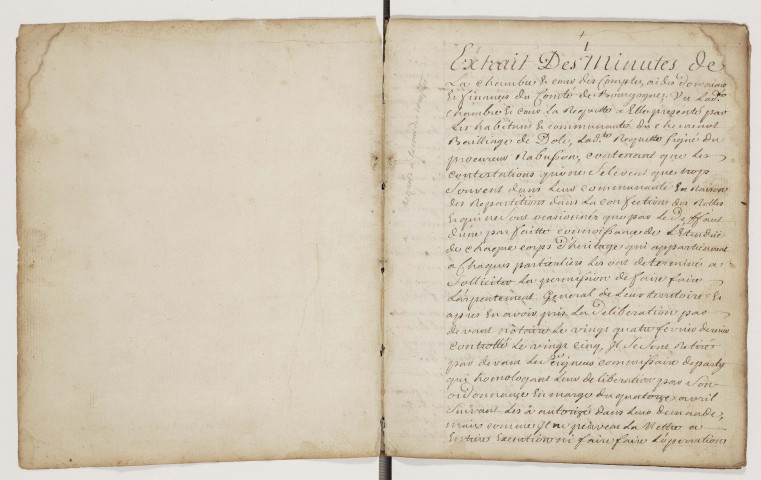 1
Extrait Des Minutes de
La chambre & cour des Comptes, aides domaines
& finances du Comté de Bourgogne; Vu Lad.te
chambre & cour La Requette a Elle presenté par
Les habitans & communauté du chemenot
Bailliage de Dole, Lad.te Requette signé du
procureur Rabusson, contenant que Les
contestations qui ne selevent que trop
Souvent dans Leur communauté En Raison
des Repartitions dans La confection des Rolles
& qui ne sont ocasionnées que par Le Deffaut
d'une parfaitte connoissance de L'Etendüe
de chaque corps d'héritage qui appartiennent
a Chaques particuliers Les ont determiné a
Solliciter La permission de faire faire
L'arpentement General de Leur territoire &
apres En avoir pris La Deliberation par
devant notaire Le vingt quatre fevrier dernier
controllé Le vingt cinq, Il se sont Retirés
par devant Le Seigneur commissaire departy
qui homologant Leur deliberation par Son
ordonnance En marge du quatorze avril
Suivant Les à autorizé dans Leur demande;
mais comme Il ne peuvent La Mettre a
Entiere Execution ni faire faire L'operation